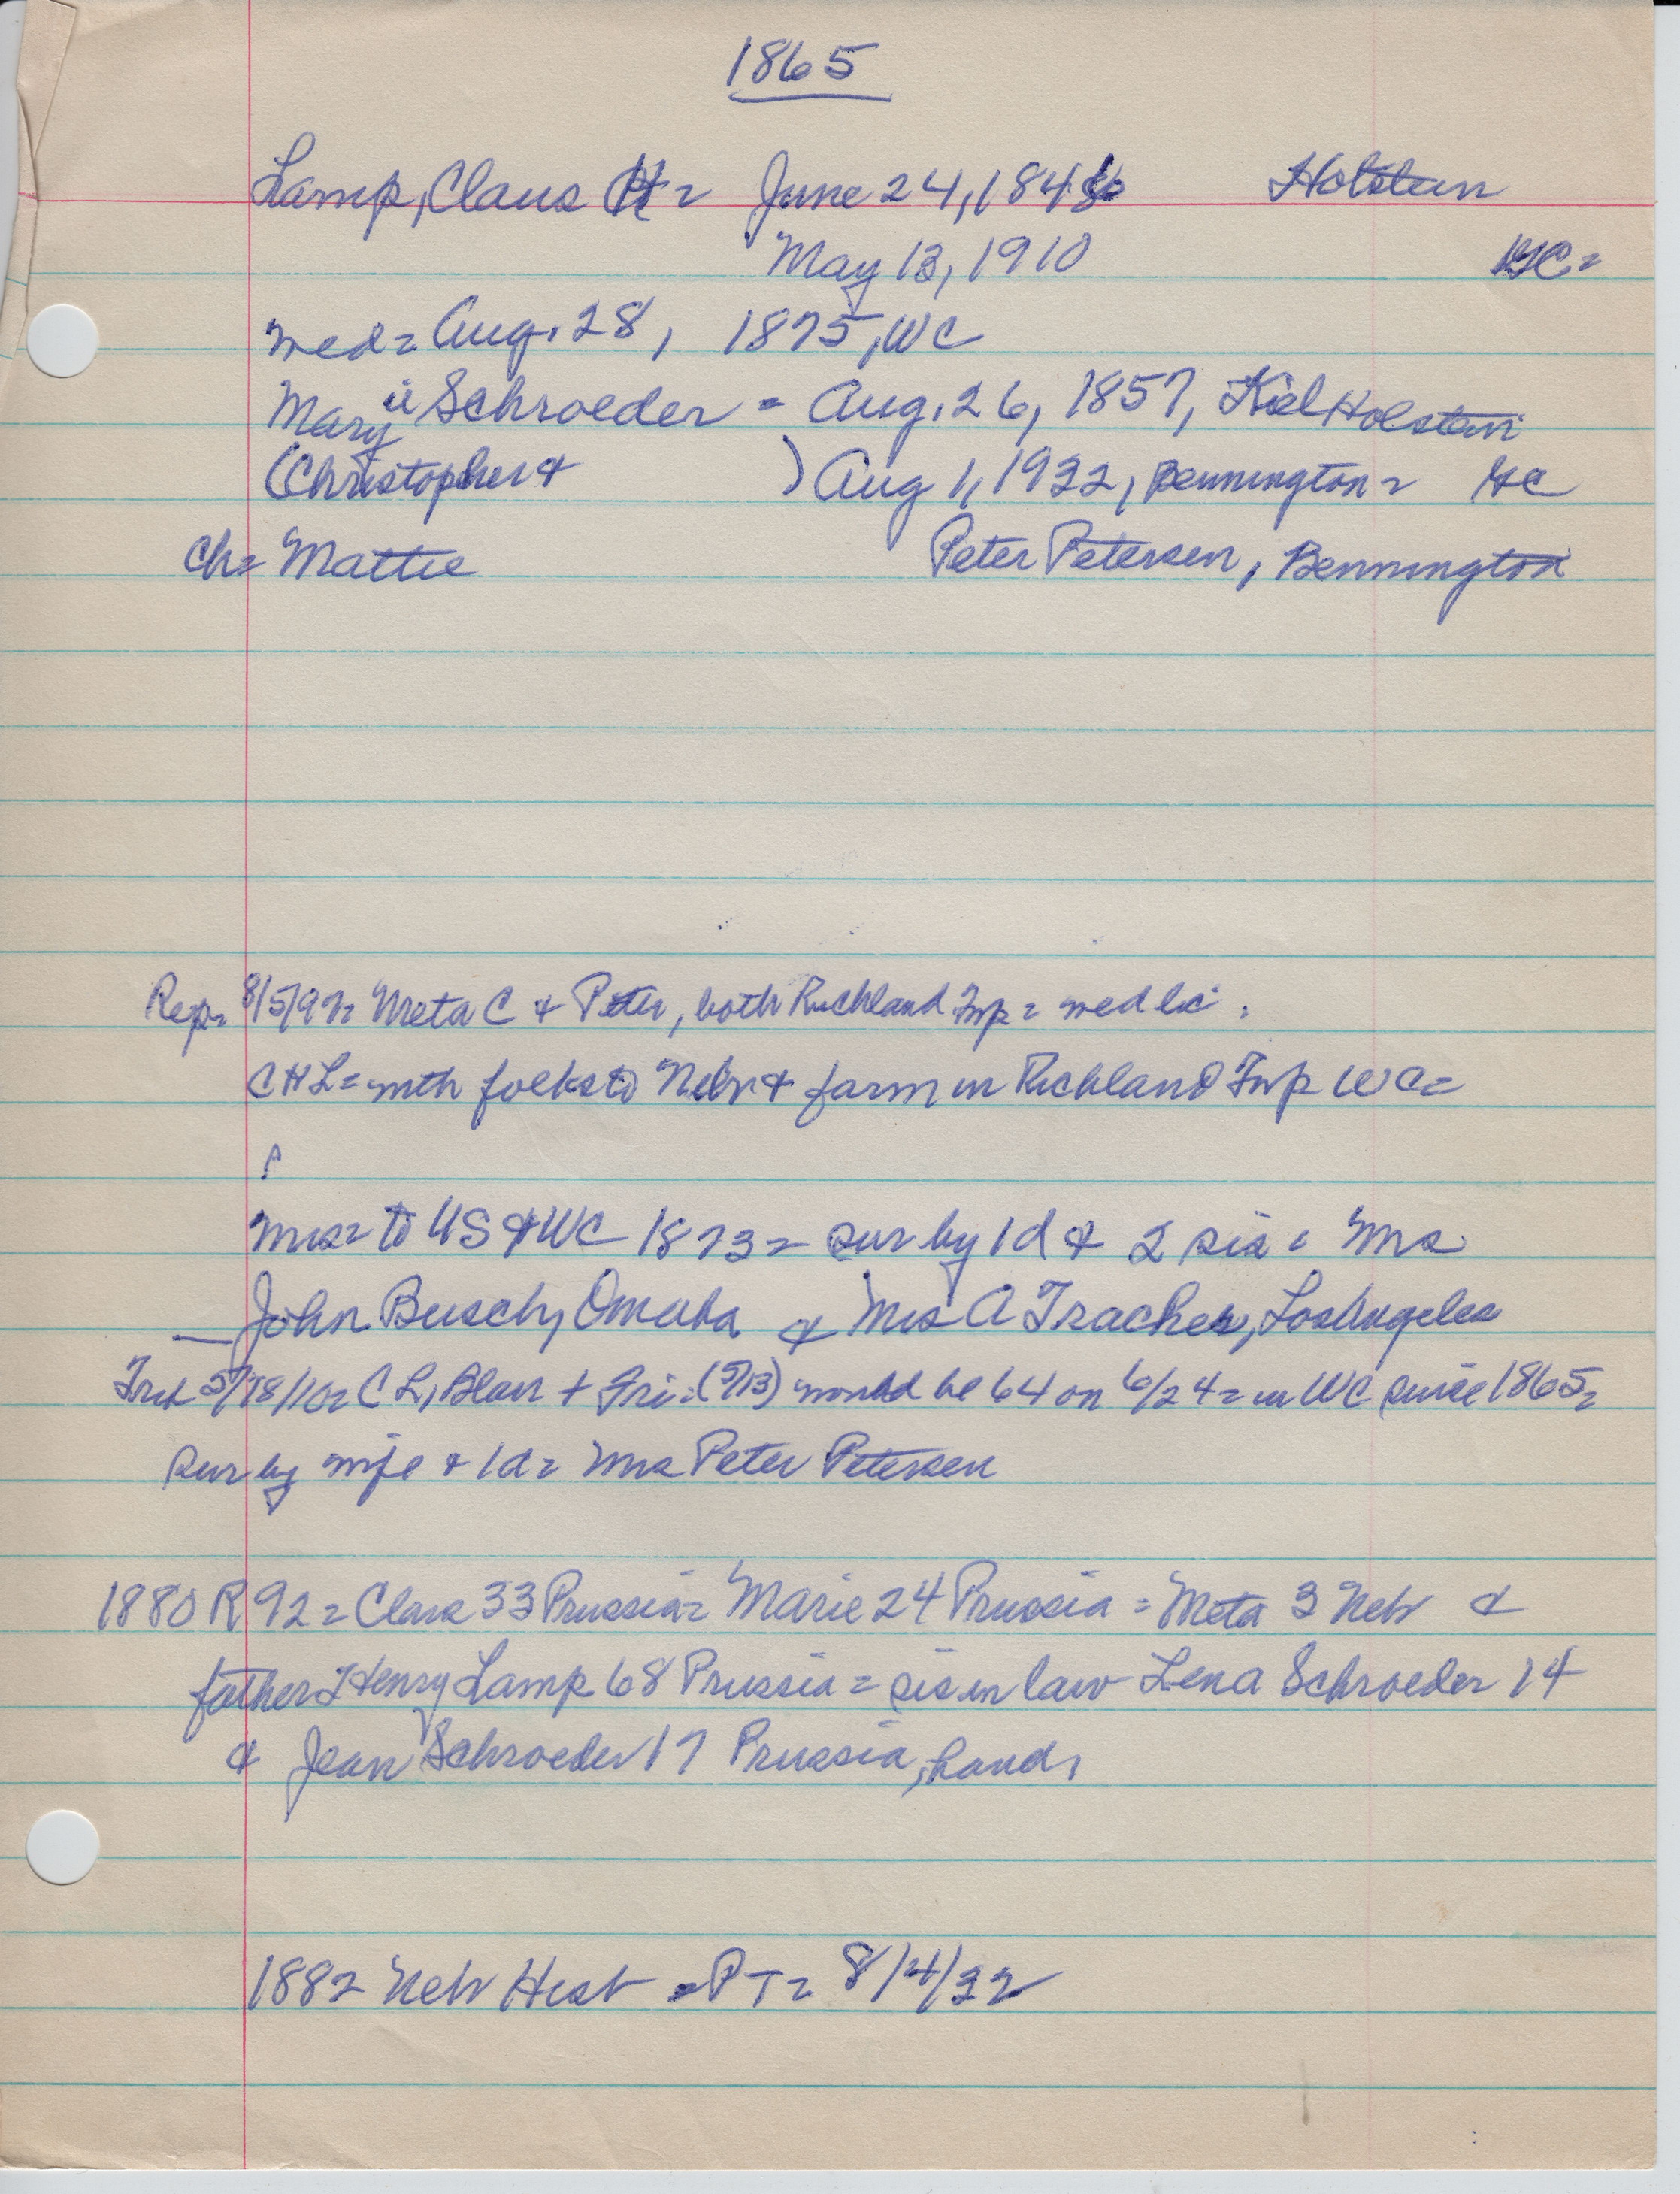 1865
Lamp, Claus H = June 24, 1846 Holstein
May 13, 1910 GC =
wed = Aug. 28, 1875, WC
Mary ie Schroeder = Aug. 26, 1857, Kiel Holstein
(Christopher & ) Aug 1, 1932, Bennington = GC
Ch = Mattie Peter Petersen, Bennington
Rep = 8/5/97 = Meta C & Peter, both Richland Twp = wed lic.
C H L = with folks to Nebr & farm in Richland Twp WC =
Mrs = to US & WC 1873 = sur by 1 d & 2 sis = Mrs
John Busch, Omaha & Mrs A Tracher, Los Angeles
5/18/10 = C L, Blair + Fri = (5/13) would be 64 on 6/24 = in WC since 1865 =
sur by wife & 1 d = Mrs Peter Petersen
1880 R 92 = Claus 33 Prussia = Marie 24 Prussia = Meta 3 Neb &
father Henry Lamp 68 Prussia = sis in law Lena Schroeder 14
& Jean Schroeder 17 Prussia, hand,
1882 Neb Hist = PT = 8/4/32